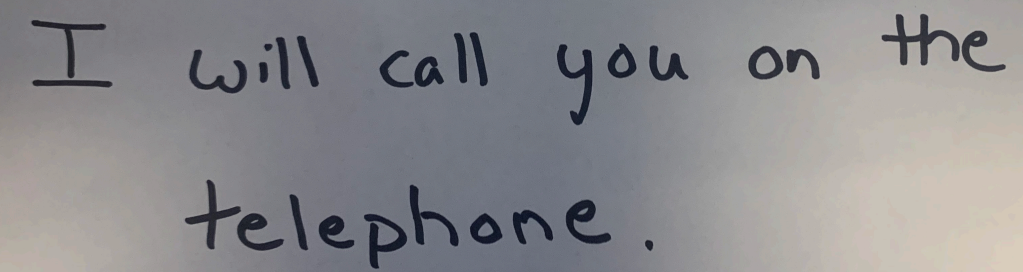 I will call you on the
telephone.